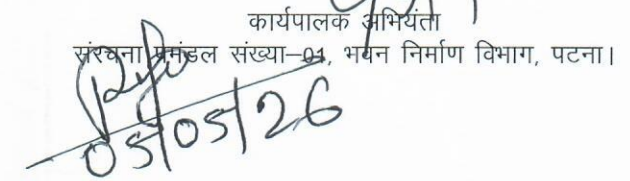 कार्यपालक अभियंता
संरचना प्रमंडल संख्या–01, भवन निर्माण विभाग, पटना।
05/05/26